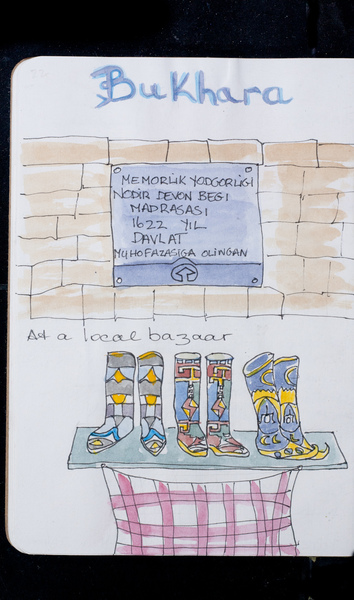 Bukhara
MEMORLIK YODGORLIGI
NODIR DEVON BEGI
MADRASASI
1622 YIL
DAVLAT
MUHOFAZASIGA OLINGAN
At a local bazaar